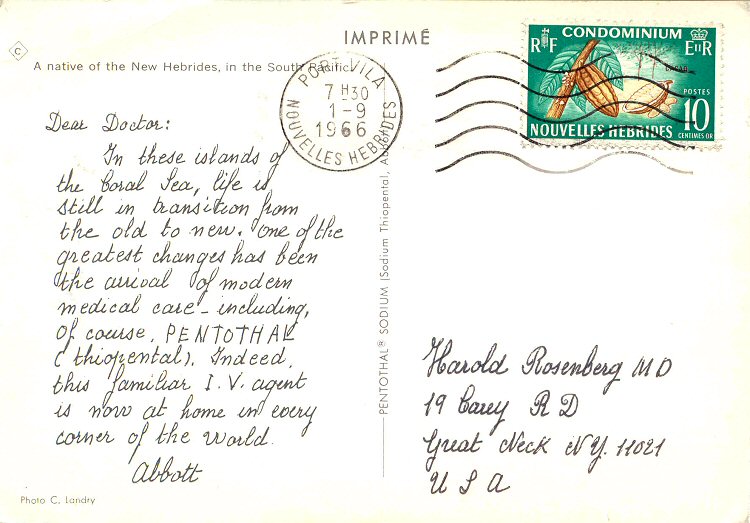 C
IMPRIMÉ
A native of the New Hebrides, in the South Pacific
PORT-VILA
7 H 30
1-9
1966
NOUVELLES HEBRIDES
CONDOMINIUM
RF
EIIR
POSTES
10
CENTIMES OR
NOUVELLES HEBRIDES
Dear Doctor:
In these islands of
the Coral Sea, life is
still in transition from
the old to new. One of the
greatest changes has been
the arrival of modern
medical care - including,
of course, PENTOTHAL
(thiopental). Indeed,
this familiar I.V. agent
is now at home in every
corner of the world.
Abbott
PENTOTHAL® SODIUM (Sodium Thiopental,
Harold Rosenberg MD
19 Carey RD
Great Neck NY. 11021
USA
Photo C. Landry